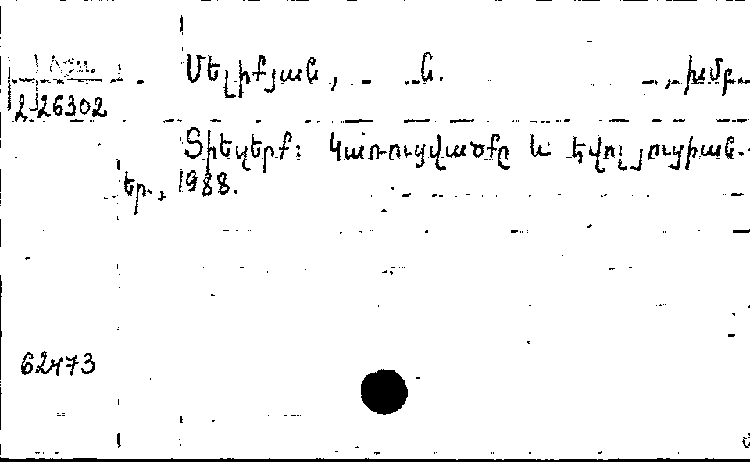 Մելիքյան, Ն. , խմբ.
2 26302
Տիեզերք: Կառուցվածքը և էվոլյուցիան.-
Եր., 1988.
62473